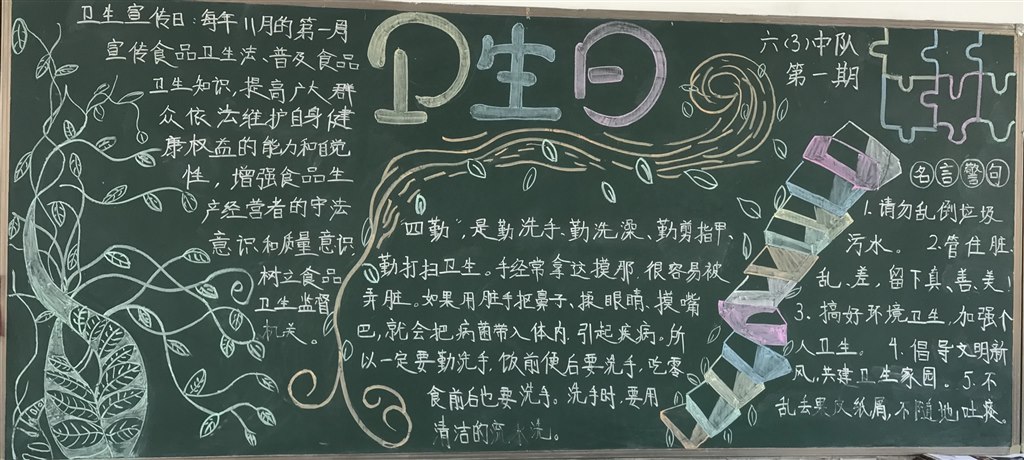 卫生日
六(3)中队
第一期
卫生宣传日:每年11月的第一周
宣传食品卫生法、普及食品
卫生知识,提高广大群
众依法维护自身健
康权益的能力和自觉
性,增强食品生
产经营者的守法
意识和质量意识
树立食品
卫生监督
机关。
四勤”是勤洗手、勤洗澡、勤剪指甲
勤打扫卫生。手经常拿这摸那,很容易被
弄脏。如果用脏手挖鼻子、揉眼睛、摸嘴
巴,就会把病菌带入体内,引起疾病。所
以一定要勤洗手,饮前便后要洗手,吃零
食前后也要洗手。洗手时,要用
清洁的流水洗。
名言警句
1.请勿乱倒垃圾
污水。 2.管住脏、
乱、差,留下真、善、美!
3.搞好环境卫生,加强个
人卫生。 4.倡导文明新
风,共建卫生家园。5.不
乱丢果皮纸屑,不随地吐痰。